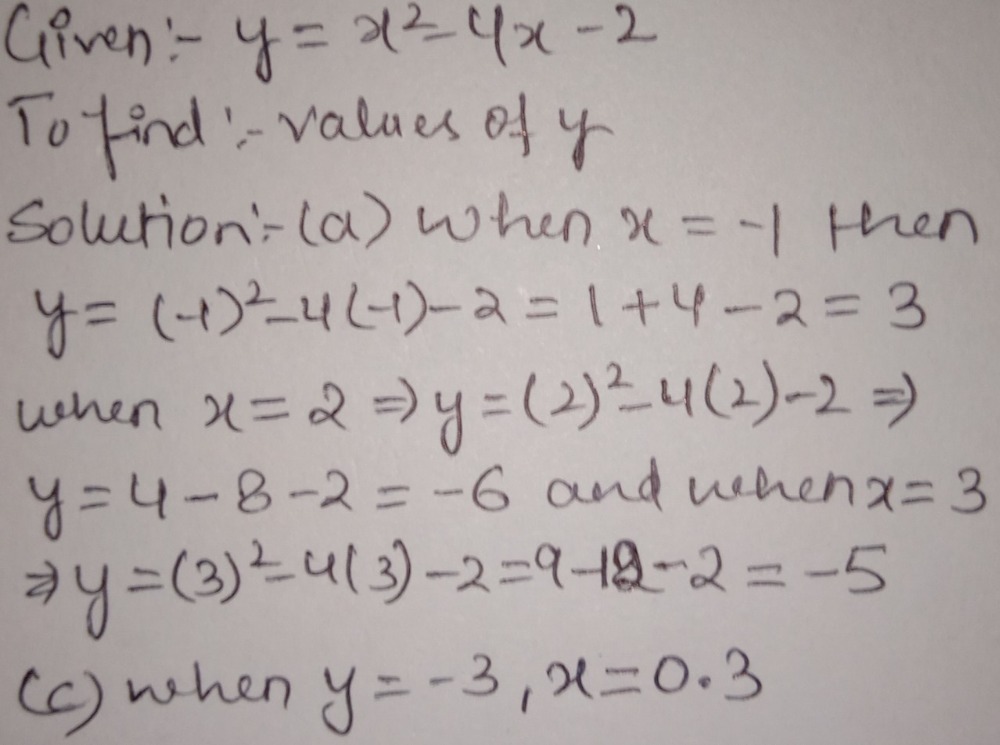 Given:- y = x² - 4x - 2
To find :- values of y
Solution:- (a) when x = -1 then
y = (-1)² - 4(-1) - 2 = 1 + 4 - 2 = 3
when x = 2 ⇒ y = (2)² - 4(2) - 2 ⇒
y = 4 - 8 - 2 = -6 and when x = 3
⇒ y = (3)² - 4(3) - 2 = 9 - 12 - 2 = -5
(c) when y = -3, x = 0.3